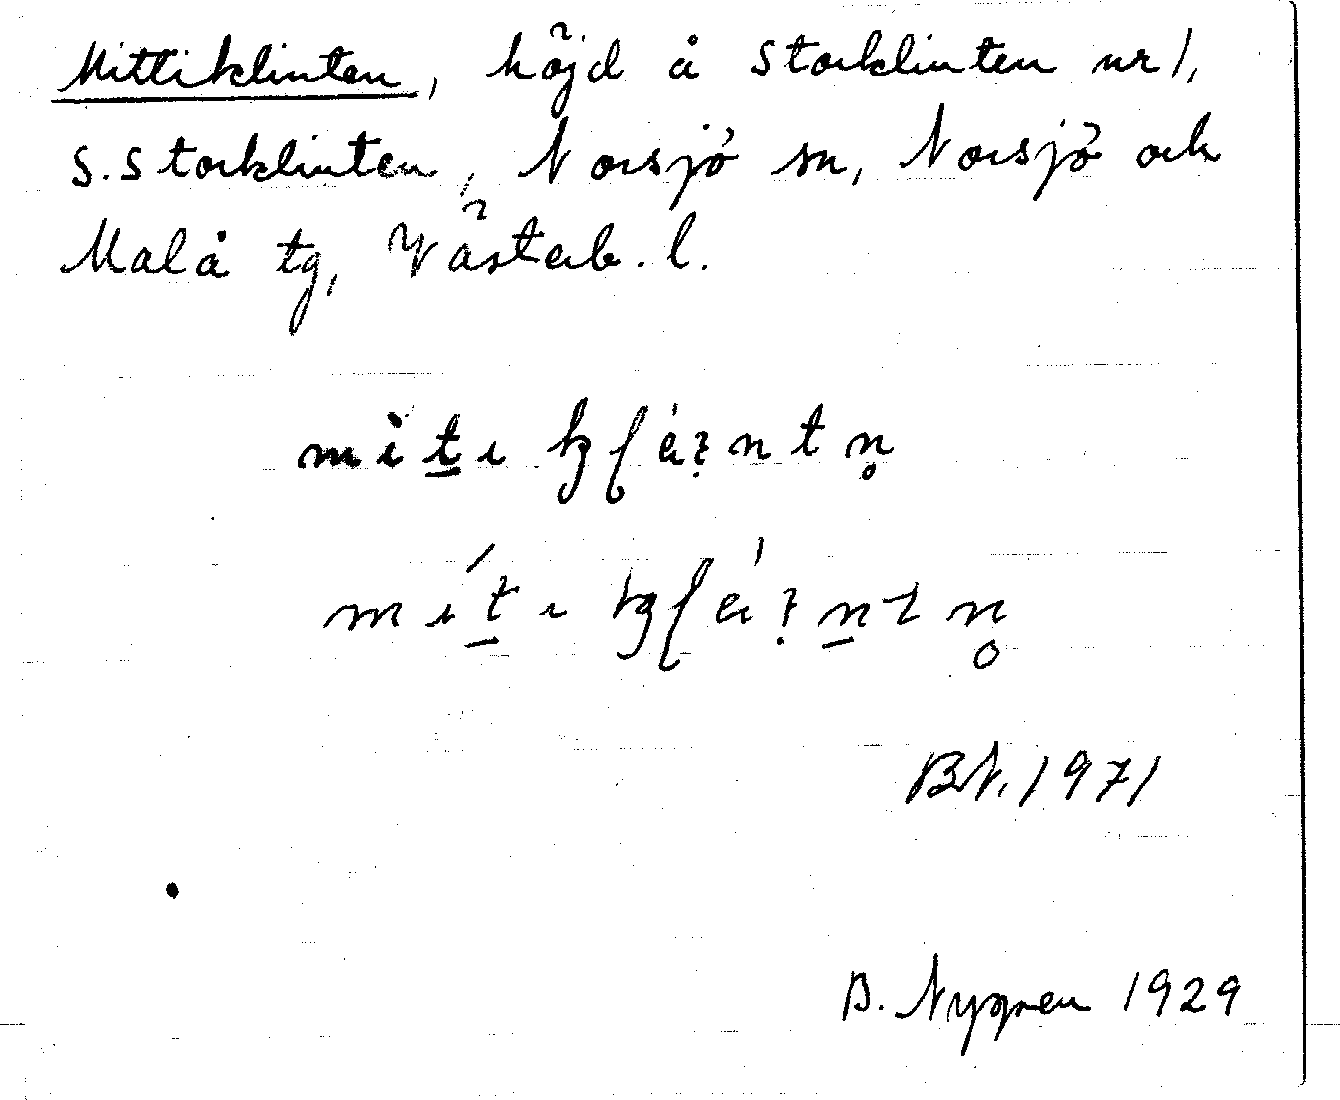 Mittiklinten, höjd å Storklinten nr 1,
s. Storklinten, Norsjö sn, Norsjö och
Malå tg, Västerb. l.
BN. 1971
B. Nygren 1929